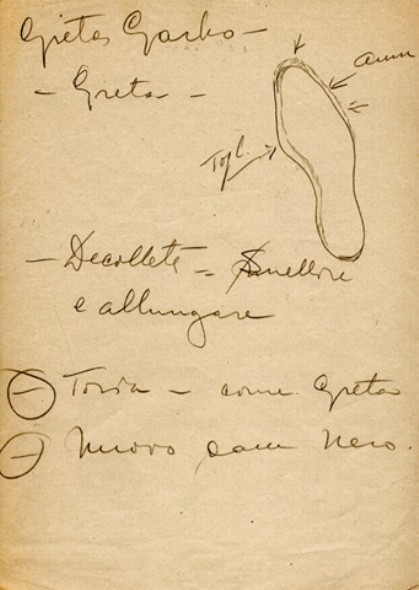 Greta Garbo –
– Greta –
Togl.
– Decolleté = Snellire
e allungare
– Torda – come Greta
– Nuovo nero.